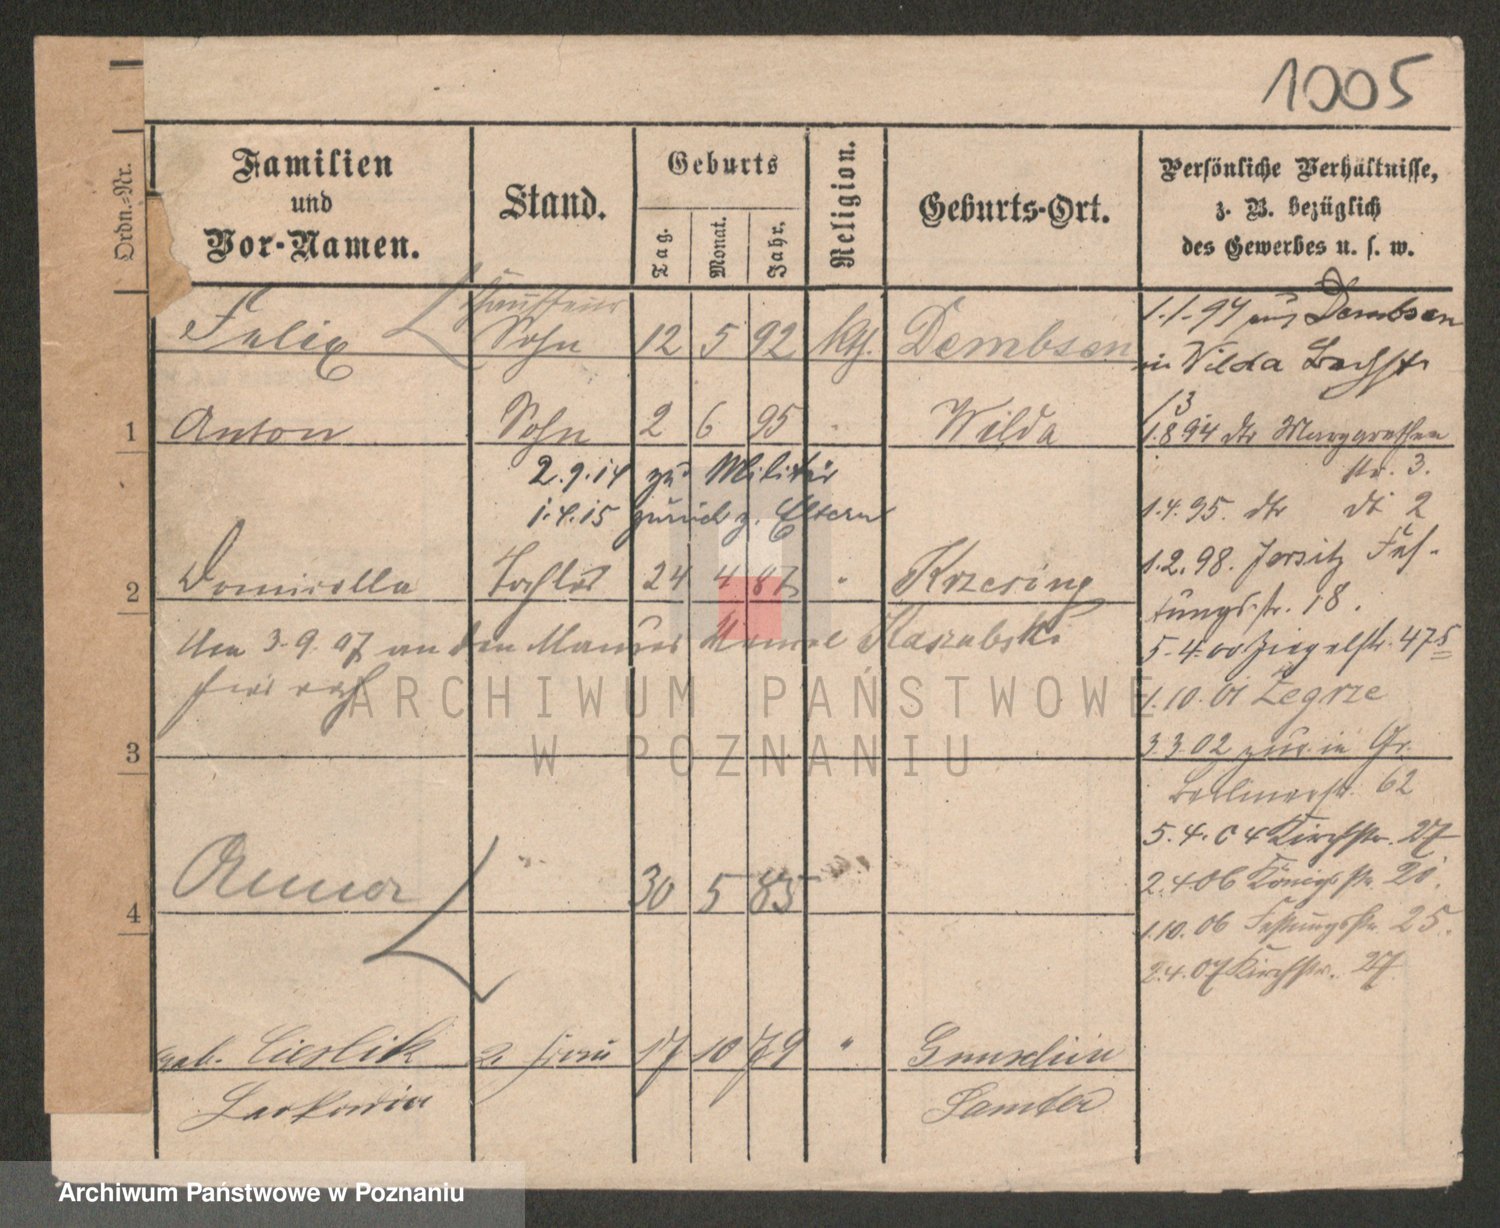 1005
Ordn.-Nr.
Familien
und
Vor-Namen.
Stand.
Geburts
Tag.
Monat.
Jahr.
Religion.
Geburts-Ort.
Persönliche Verhältnisse,
z. B. bezüglich
des Gewerbes u. s. w.
Chauffeur
Felix Sohn 12 5 92 kth. Dembsen
1.1.97 aus Dembsen
in Wilda Bachstr
13
1 Anton Sohn 2 6 95 " Wilda
1.8 94 dto Margarethen
str. 3.
2.9.14 zum Militär
1.4.15 zurück z. Eltern
1.4.95. dto dt 2
2 Domicella Tochter 24 4 87 " Krzesing
1.2.98. Jersitz Fes-
tungsstr. 18.
Am 3.9.07 an den Maurer Kaszubski
5.4.00 Ziegelstr. 47
1.10.01 Zegrze
3
3.3.02 zur. in Gr.
Berlinerstr. 62
5.4.04 Kirchstr. 27
4 30 5 85
2.4.06 Königstr. 20.
1.10.06 Festungsstr. 25.
2.4.07 Kirchstr. 27
geb. Cieslik 2. Frau 17 10 79 "
Samter
ARCHIWUM PAŃSTWOWE
W POZNANIU
Archiwum Państwowe w Poznaniu